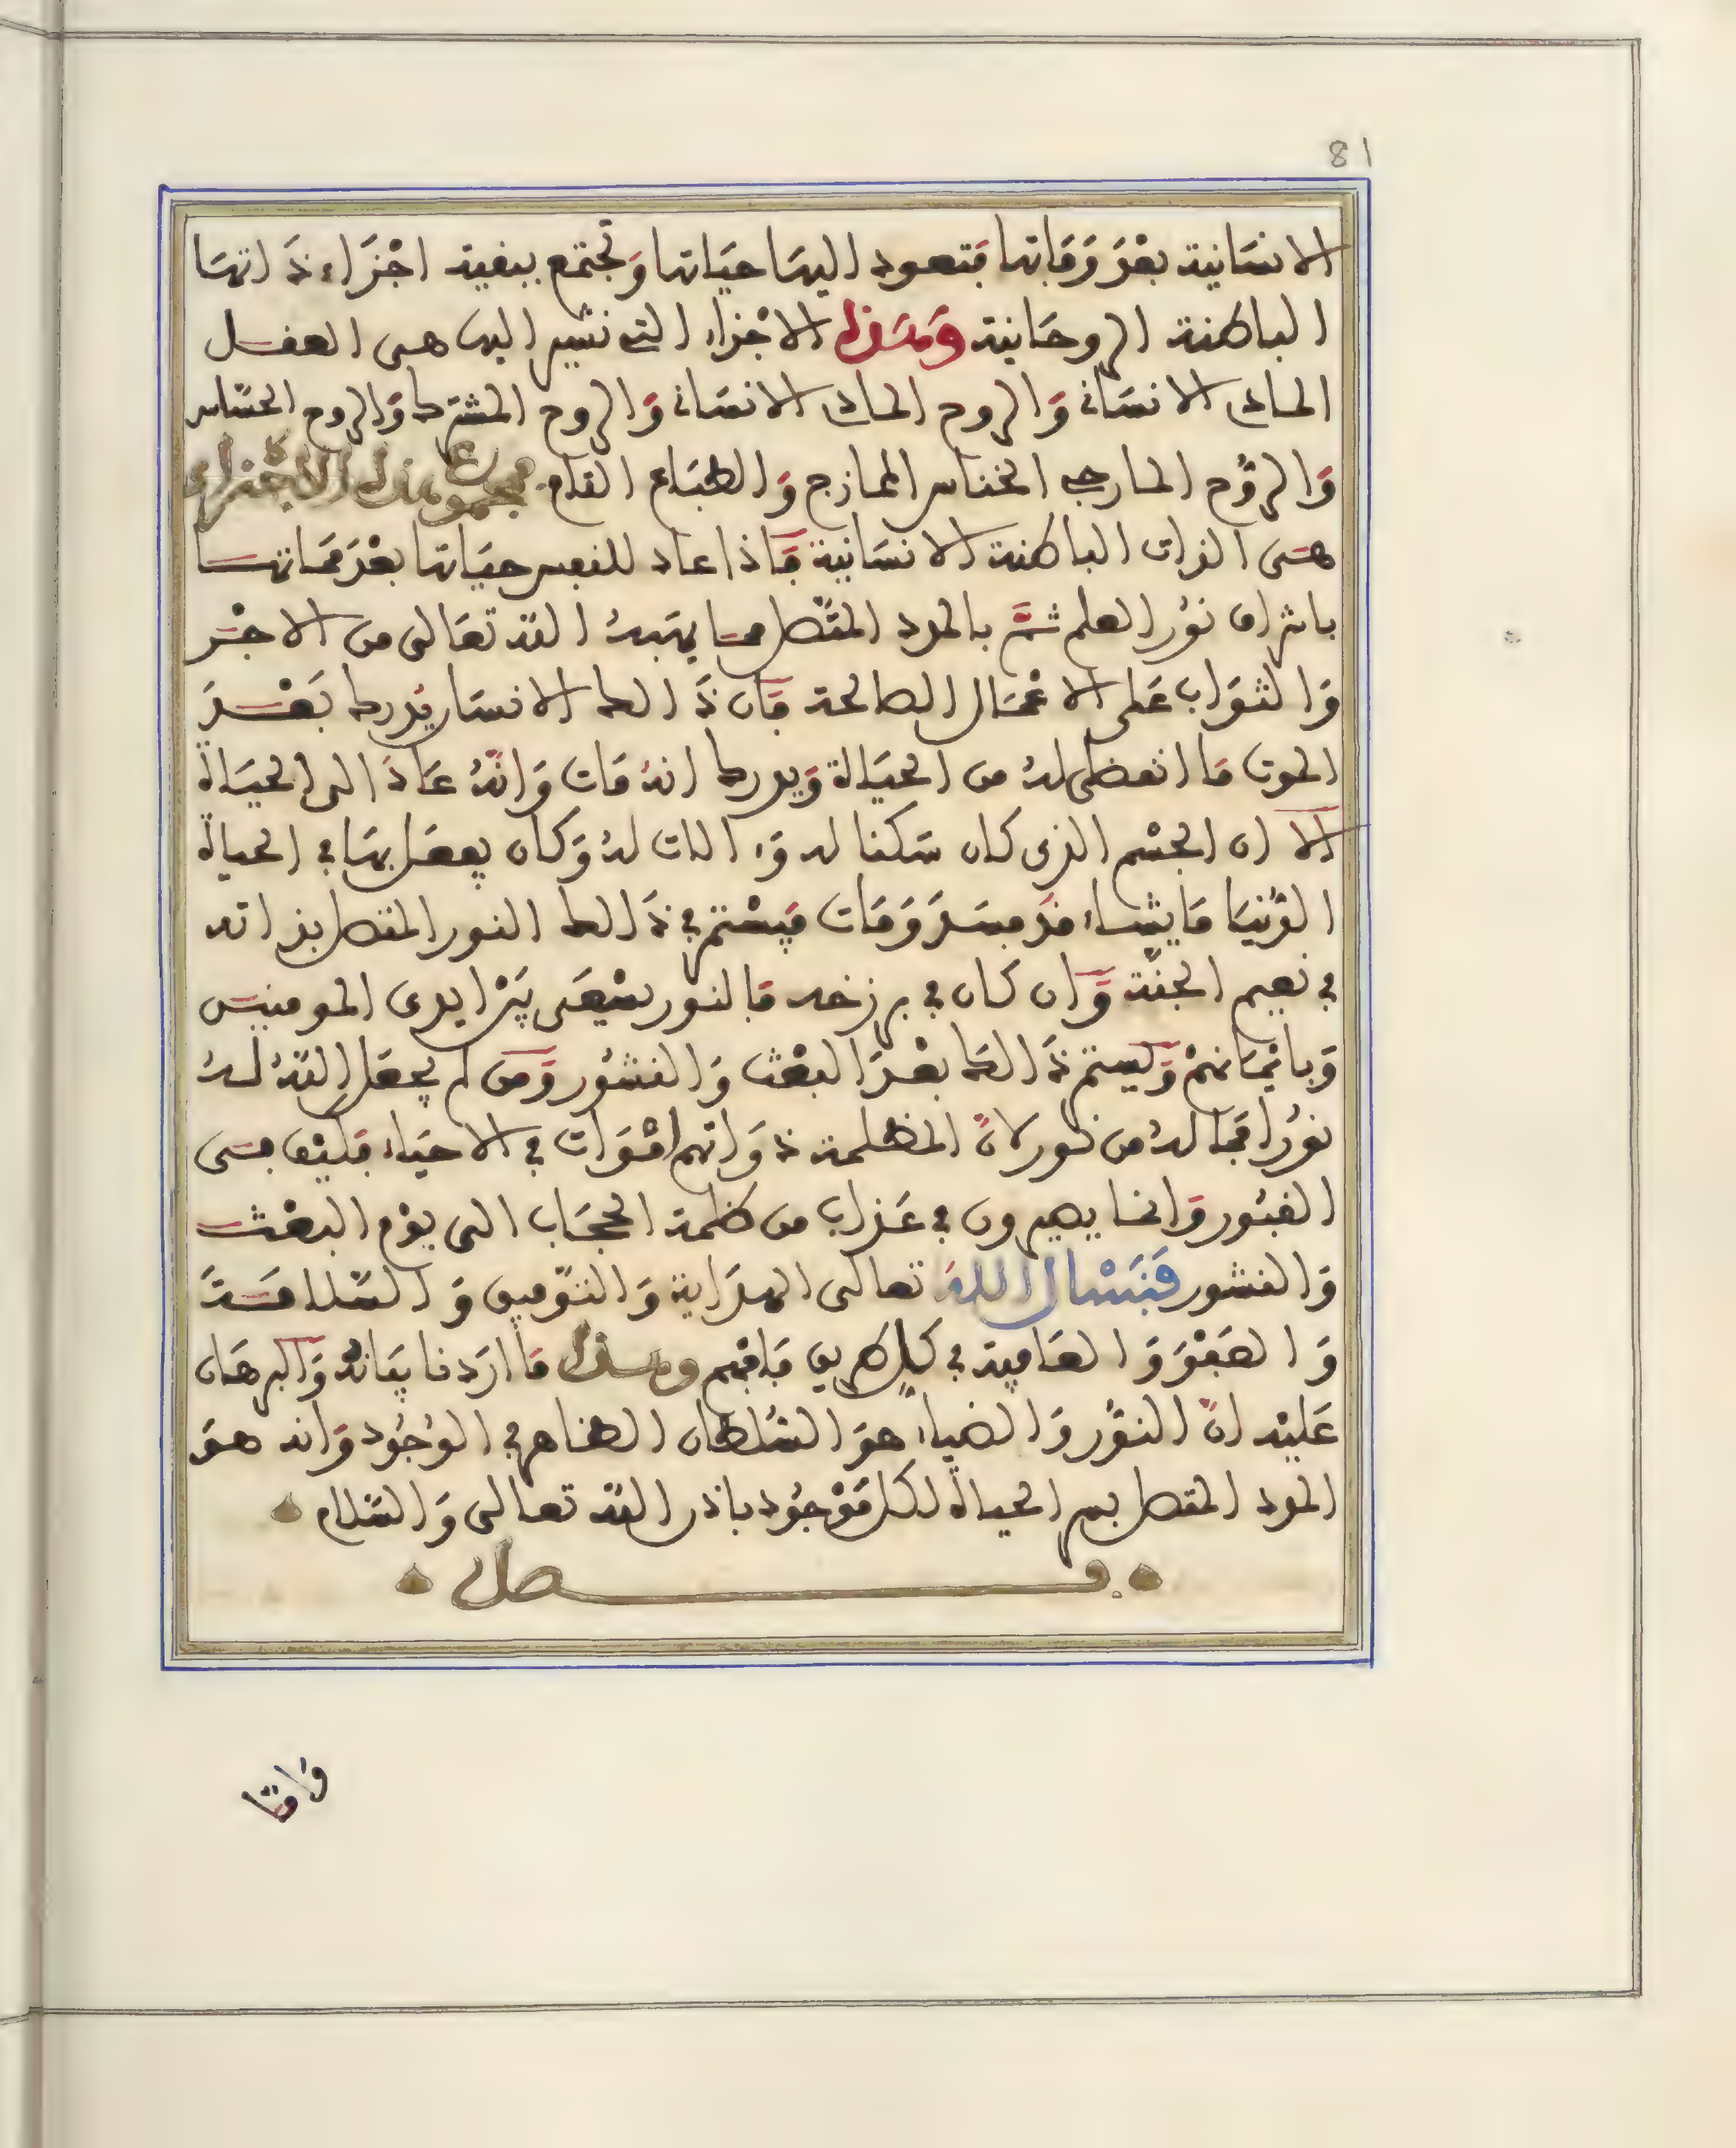 81
الانسَانية بعْدَ وَفَاتها فتعود اليهَا حيَاتها وَتجتمع ببقية اجْزَاء ذَاتهَا
الباطنة الروحَانية وَهَذه الاجْزاء التى نشير اليها هى العقل
الحاد الانسَانى وَالروح الحاد الانسَانى وَالروح المشترك وَالروح الحسّاس
وَالرّوح المارجى الخناس الممازج وَالطبَاع القام فمجموع هذه الاجْزاء
هىَ الذات الباطنة الانسَانية فَاذا عاد للنفس حيَاتها بعْدَ ممَاتهَا
باشراق نوُر العلم ثمَّ بالمدد المتّصل ممَا يهَبهُ الله تعَالى من الاجْر
وَالثوَاب عَلى الاعْمَال الصالحة فَان ذَالك الانسَان يُدرك بَعْدَ
الموت مَا انقضى لهُ من الحيَاة وَيدرك انهُ مَات وَانّهُ عَادَ الى الحيَاة
الا ان الجسْم الذى كان سَكنا له وَءالات لهُ وَكان يفعَل بهَا فى الحياة
الدّنيَا مَا يشَاء قَد فسَدَ وَمَات فيَسْتمر فى ذَالك النور المتصل بذاته
فى نعيم الجنّة وَان كان فى برزخه فَالنور يسْعَى بَيْن ايدى المومنين
وَبايْمَانهمْ وَليستمر ذَالك بعْدَ البعْث وَالنشُور وَمن لم يجعَل اللهُ لهُ
نوُرا فمَا لهُ من نور لانّ المظلمة ذوَاتهم امْوَات فى الاحيَاء فكيْف فى
القبُور وَانما يصيرون فى عَذاب من ظلمة الحجَاب الى يوْم البعْث
وَالنشور فنَسْال اللهَ تعالى الهدَاية وَالتوّفيق وَالسّلامَة
وَالعَفْوَ وَالعَافية فى كل طريق فَافهم وهذا مَا ارَدنا بيَانهُ وَالبرهَان
عَليْه انّ النوُّر وَالضياء هوَ السُّلطان الظاهر فى الوُجُود وَانه هوَ
المدد المتصل بسر الحياة لكل مَوْجُود باذن الله تعالى وَالسّلام
فصل
وَامّا